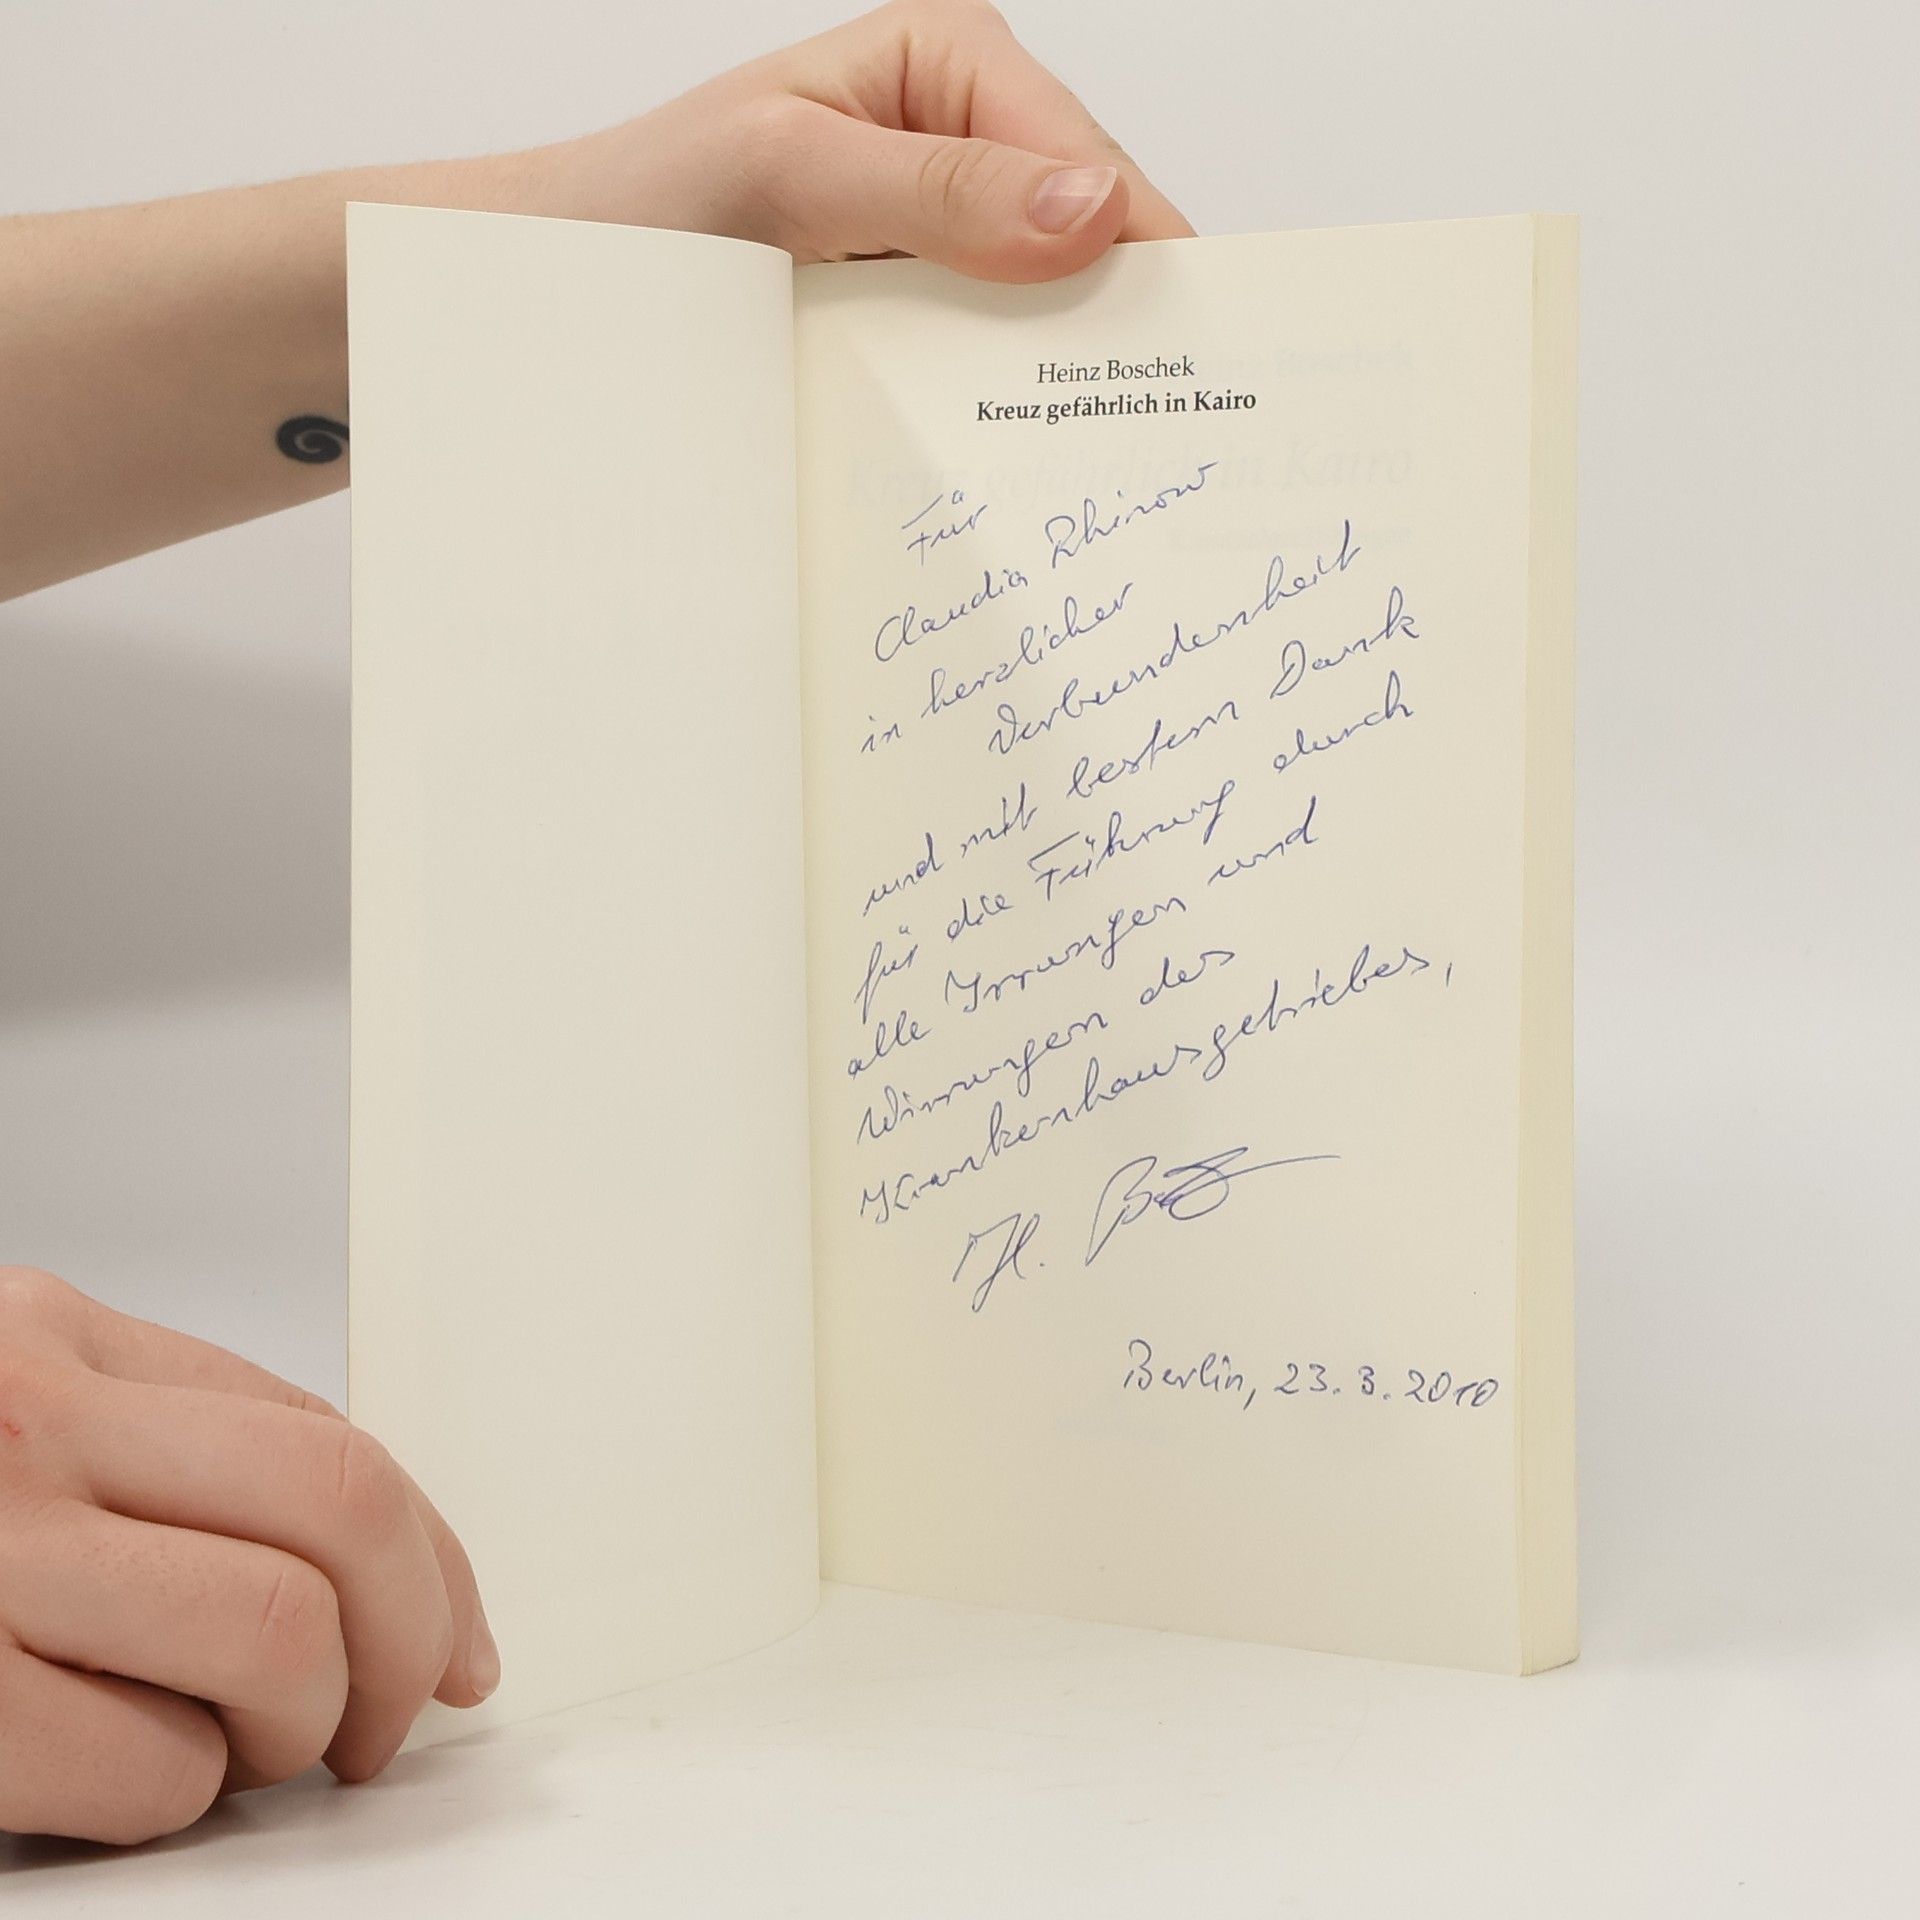 Heinz Boschek
Kreuz gefährlich in Kairo
Für
Claudia Rhinow
in herzlicher
Verbundenheit
und mit bestem Dank
für die Führung durch
alle Irrungen und
Wirrungen des
Krankenhausgetriebes,
H.
Berlin, 23.3.2010